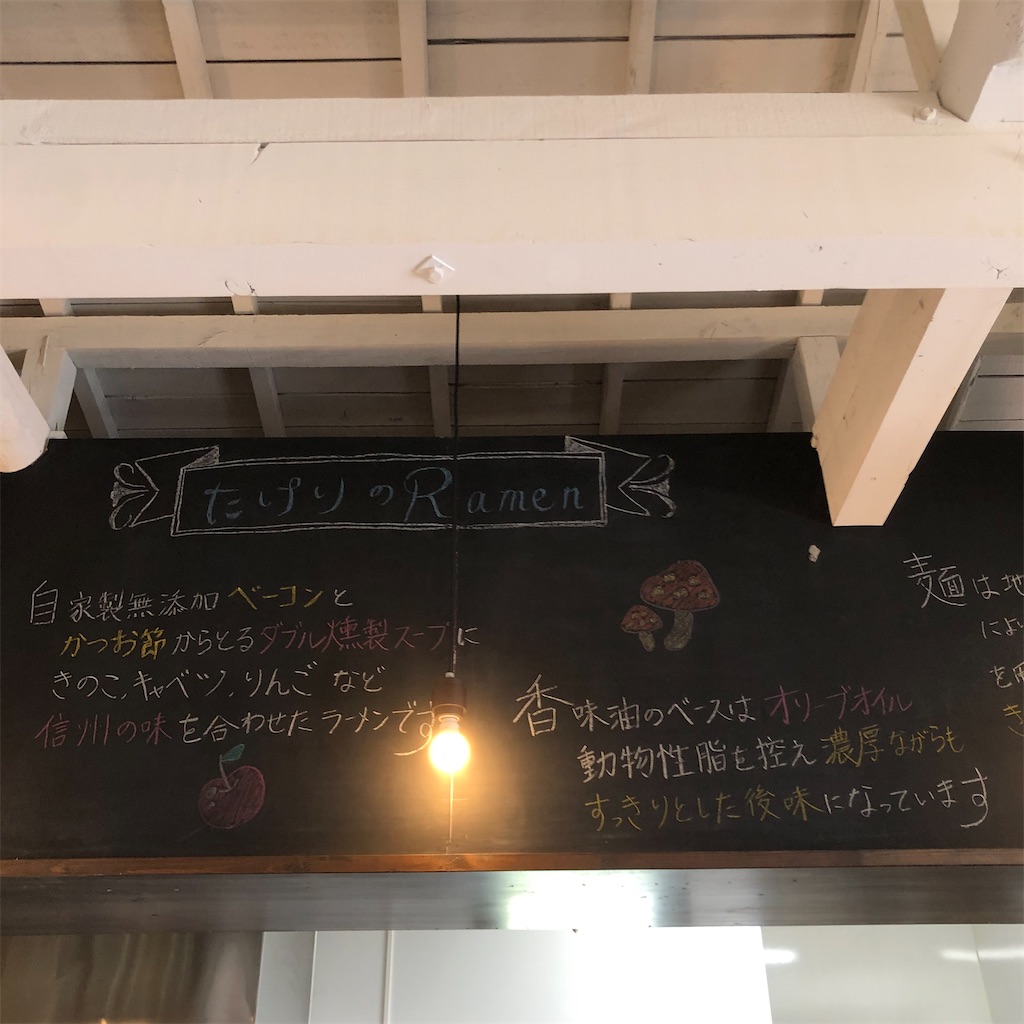 たけりのRamen
自家製無添加ベーコンと
かつお節からとるダブル燻製スープに
きのこ、キャベツ、りんごなど
信州の味を合わせたラーメンです
香味油のベースはオリーブオイル
動物性脂を控え濃厚ながらも
すっきりとした後味になっています
麦面は地
によ
を
き